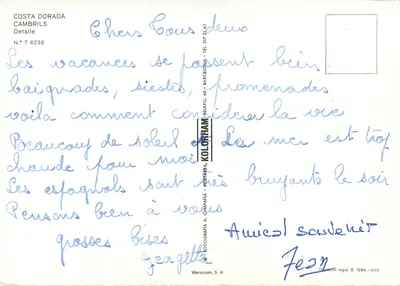 COSTA DORADA
CAMBRILS
Detalle
N.º T 6238
Chers Tous deux
Les vacances se passent bien
baignades, siestes, promenades
voila comment considérer la vie
Beaucoup de soleil La mer est trop
chaude pour moi
Les espagnols sont très bruyants le soir
Pensons bien à vous
grosses bises
Georgette
Amical souvenir
Jean
KOLORHAM
FOTOGRAFIA A. CAMPAÑA
BARCELONA
Wericrom, S. A.
legal B.
XVII